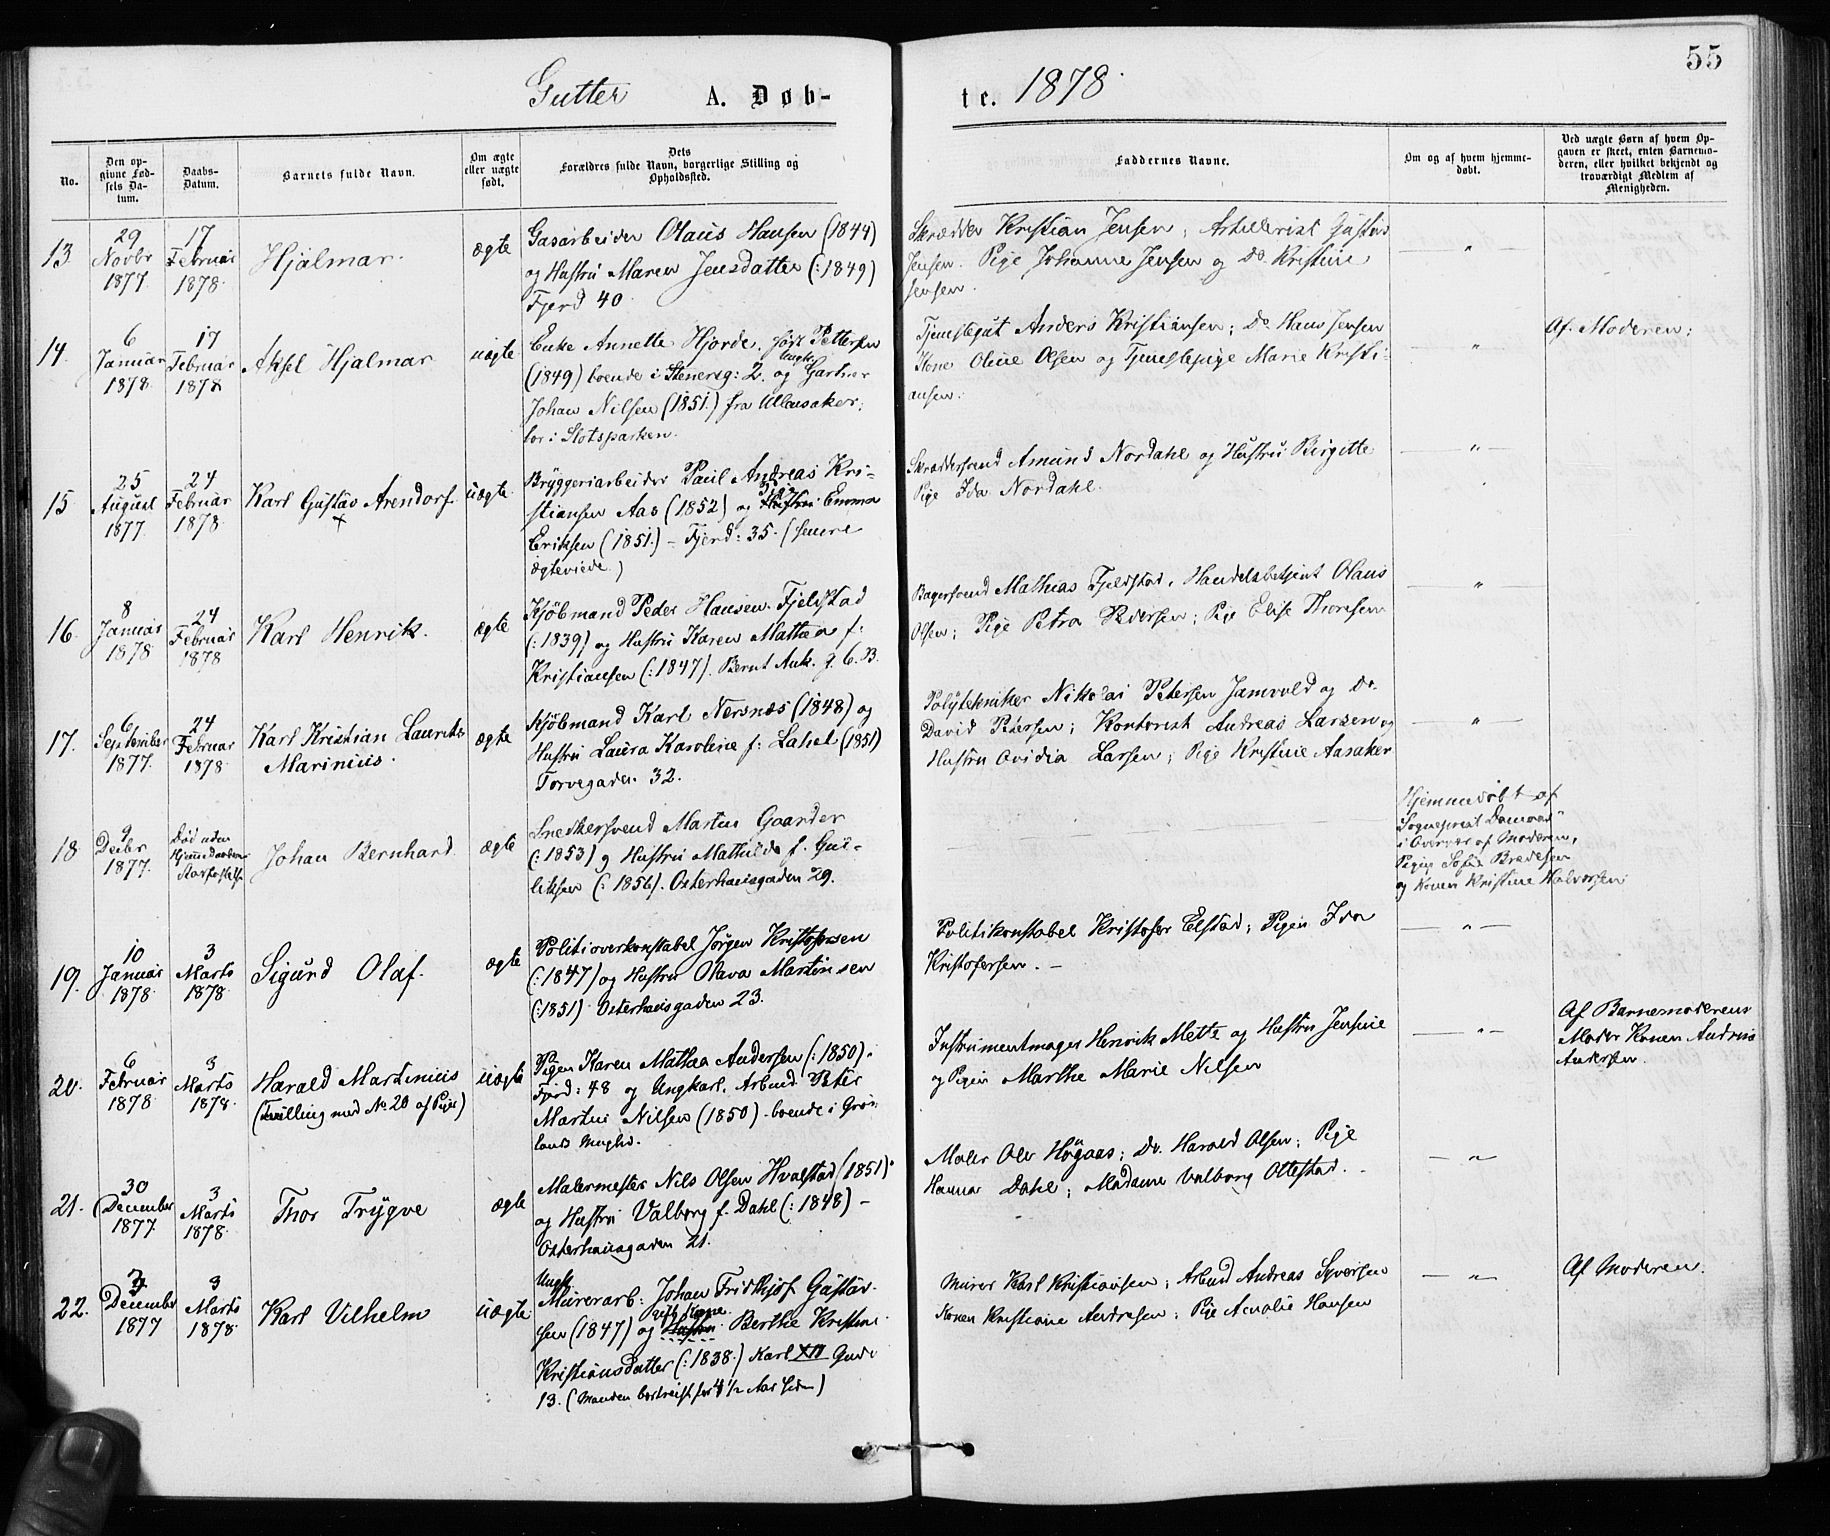 55
Gutter A. Døb-
te. 1878.
No.
Den op-
givne Fød-
sels Da-
tum.
Daabs-
Datum.
Barnets fulde Navn.
Om ægte
eller uægte
født.
Dets
Forældres fulde Navn, borgerlige Stilling og
Opholdssted.
Faddernes Navne.
Om og af hvem hjemme-
døbt.
Ved uægte Børn af hvem Op-
gaven er skeet, enten Barnemo-
deren, eller hvilket bekjendt og
troværdigt Medlem af
Menigheden.
13.
29
Novbr
1877.
17
Februar
1878.
Hjalmar.
ægte
Gasarbeider Olaus Hansen (1844)
og Hustru Maren Jensdatter (:1849)
Fjerd 40.
Skrædder Kristian Jensen; Artillerist Gustav
Jensen. Pige Johanne Jensen og Do. Kristine
Jensen.
— " —
14.
6
Januar
1878.
17
Februar
1878
Aksel Hjalmar
uægte
Enke Annette Hjorde, født Pettersen
(1849) boende i Stenersg: 2. og Ungk. Gartner
Johan Nilsen (1851.) fra Ullensaker,
bor i Slotsparken.
Tjenestegut Anders Kristiansen; Do. Hans Jensen
Kone Oline Olsen og Tjenestepige Marie Kristi-
ansen.
— " —
Af Moderen;
15.
25
August
1877.
24
Februar
1878.
Karl Gustav Arendorf
uægte
Bryggeriarbeider Paul Andreas Kri-
stiansen Aas (1852) og Pige Hustru Emma
Eriksen (1851.) – Fjerd: 35. (senere
ægteviede.)
Skræddersvend Amund Nordahl og Hustru Birgitte
Pige Ida Nordahl.
— " —
16.
8
Januar
1878
24
Februar
1878
Karl Henrik.
ægte
Kjøbmand Peder Hansen Fjeldstad
(:1839) og Hustru Karen Mathea f:
Kristiansen (:1847). Bernt Ank. g. 6. B.
Bagersvend Mathias Fjeldstad, Handelsbetjent Olaus
Olsen; Pige Petra Pedersen; Pige Elise Thoresen
— " —
17.
6
September
1877.
24
Februar
1878.
Karl Kristian Laurits
Marinius.
ægte
Kjøbmand Karl Nersnæs (1848) og
Hustru Laura Karoline f: Lahel (1851)
Torvegaden 32.
Polytekniker Nikolai Petersen Jamvold og Do.
David Petersen; Kontorist Andreas Larsen og
Hustru Ovidia Larsen; Pige Kristine Aasaker
— " —
18
9
Decbr
1877.
Død uden
Johan Bernhard
ægte
Snedkersvend Martin Gaarder
(:1853) og Hustru Mathilde f. Gul-
liksen (: 1856). Osterhausgaden 29.
Hjemmedøbt af
Sogneprest
i Overvær af Moderen,
Pigen Sofie Bredesen
og Konen Kristine Halvorsen.
19.
10
Januar
1878.
3
Marts
1878.
Sigurd Olaf.
ægte
Politioverkonstabel Jørgen Kristofersen
(:1847) og Hustru Olava Martinsen
(:1851) Osterhausgaden 23.
Politikonstabel Kristofer Elstad; Pigen Ida
Kristofersen. –
— " —
20.
6
Februar
1878.
3
Marts
1878.
Harald Martinius
(Tvilling med No. 20 af Piger)
uægte
Pigen Karen Mathea Andersen (:1850).
Fjerd: 48 og Ungkarl, Arbmd. Peter
Martin Nilsen (1850). boende i Grøn
lands
Instrumentmager Henrik Mette og Hustru Jensine
og Pigen Marthe Marie Nilsen
— " —
Af Barnemoderens
Moder Konen Andrine
Andersen.
21.
30
December
1877.
3
Marts
1878.
Thor Trygve
ægte
Malermester Nils Olsen Hvalstad (1851).
og Hustru Valborg f. Dahl (:1848) –
Osterhausgaden 21.
Maler Olv Høgaas; Do. Harald Olsen; Pige
Hanna Dahl; Madame Valborg Ottestad.
— " —
22.
December
1877
3
Marts
1878.
Karl Vilhelm
uægte
Ungk.
Murerarb: Johan Fridthjof Gustav-
sen (1847) og gift Kone. Hustru Berthe Kristine
Kristiansdatter (:1838.) Karl XII Gade
13. (Manden bortreist for 4 1/2 Aar siden)
Murer Karl Kristiansen; Arbmd Andreas Syversen
Konen Kristiane Andresen; Pige Amalie Hansen
— " —
Af Moderen.